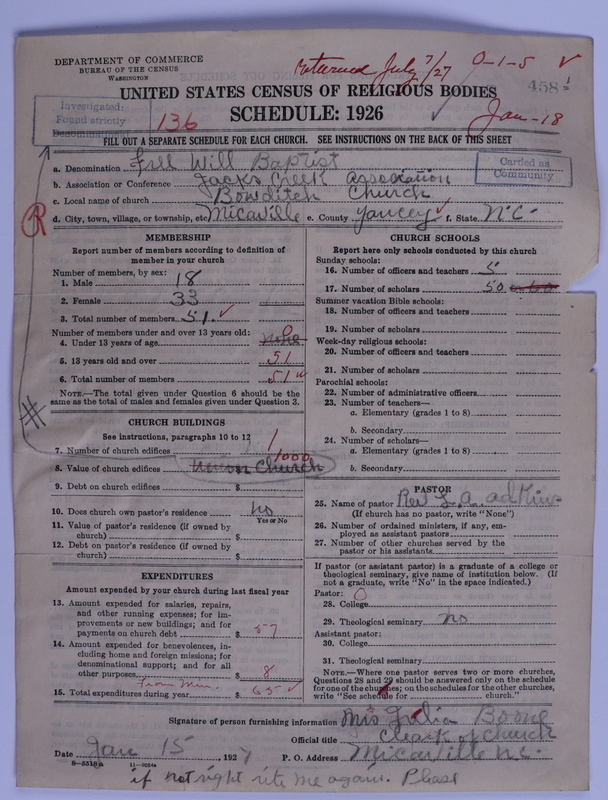 DEPARTMENT OF COMMERCE
BUREAU OF THE CENSUS
WASHINGTON
Returned July 7/27 0-1-5
458
UNITED STATES CENSUS OF RELIGIOUS BODIES
Investigated:
Found strictly
136
SCHEDULE: 1926
Jan-18
FILL OUT A SEPARATE SCHEDULE FOR EACH CHURCH. SEE INSTRUCTIONS ON THE BACK OF THIS SHEET
Carded as
Community
a. Denomination Free Will Baptist
b. Association or Conference Jacks Creek Association
c. Local name of church Bowditch Church
d. City, town, village, or township, etc. Micaville e. County Yancey f. State N.C.
R
MEMBERSHIP
Report number of members according to definition of
member in your church
Number of members, by sex:
1. Male 18
2. Female 33
3. Total number of members 51
Number of members under and over 13 years old:
4. Under 13 years of age 0
5. 13 years old and over 51
6. Total number of members 51
NOTE.—The total given under Question 6 should be the
same as the total of males and females given under Question 3.
#
CHURCH BUILDINGS
See instructions, paragraphs 10 to 12
7. Number of church edifices 1
8. Value of church edifices 1000
9. Debt on church edifices $
10. Does church own pastor's residence no
Yes or No
11. Value of pastor's residence (if owned by
church) $
12. Debt on pastor's residence (if owned by
church) $
EXPENDITURES
Amount expended by your church during last fiscal year
13. Amount expended for salaries, repairs,
and other running expenses; for im-
provements or new buildings; and for
payments on church debt $ 57
14. Amount expended for benevolences, in-
cluding home and foreign missions; for
denominational support; and for all
other purposes $ 8
from Min.
15. Total expenditures during year $ 65
CHURCH SCHOOLS
Report here only schools conducted by this church
Sunday schools:
16. Number of officers and teachers 5
17. Number of scholars 50
Summer vacation Bible schools:
18. Number of officers and teachers
19. Number of scholars
Week-day religious schools:
20. Number of officers and teachers
21. Number of scholars
Parochial schools:
22. Number of administrative officers
23. Number of teachers—
a. Elementary (grades 1 to 8)
b. Secondary
24. Number of scholars—
a. Elementary (grades 1 to 8)
b. Secondary
PASTOR
25. Name of pastor Rev L. A. Adkins
(If church has no pastor, write "None")
26. Number of ordained ministers, if any, em-
ployed as assistant pastors
27. Number of other churches served by the
pastor or his assistants
If pastor (or assistant pastor) is a graduate of a college or
theological seminary, give name of institution below. (If
not a graduate, write "No" in the space indicated.)
Pastor: 0
28. College
29. Theological seminary no
Assistant pastor:
30. College
31. Theological seminary
NOTE.—Where one pastor serves two or more churches,
Questions 28 and 29 should be answered only on the schedule
for one of the churches; on the schedules for the other churches,
write "See schedule for church.")
Signature of person furnishing information Mrs Julia Boone
Official title Cleark of church
Date Jan 15, 1927 P. O. Address Micaville N.C.
8-5518a 11-9084a
if not right rite me again. Please